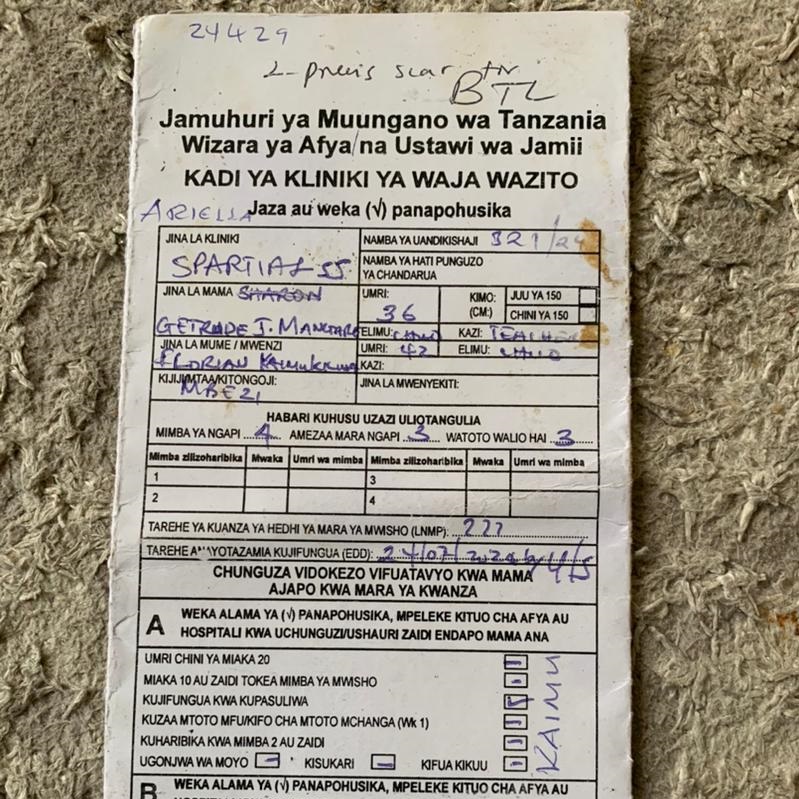 24429
scar
BTL
Jamuhuri ya Muungano wa Tanzania
Wizara ya Afya na Ustawi wa Jamii
KADI YA KLINIKI YA WAJA WAZITO
ARIELLA Jaza au weka (√) panapohusika
JINA LA KLINIKI
SPARTIAL SS
NAMBA YA UANDIKISHAJI 321/24
NAMBA YA HATI PUNGUZO
YA CHANDARUA
JINA LA MAMA SHARON
GETRUDE J.
UMRI:
36
KIMO:
(CM:)
JUU YA 150
CHINI YA 150
ELIMU: KAZI: TEACHER
JINA LA MUME / MWENZI
FLORIAN
UMRI: 42 ELIMU:
KAZI:
KIJIJI/MTAA/KITONGOJI:
MBEZI
JINA LA MWENYEKITI:
HABARI KUHUSU UZAZI ULIOTANGULIA
MIMBA YA NGAPI 4 AMEZAA MARA NGAPI 3 WATOTO WALIO HAI 3
Mimba zilizoharibika Mwaka Umri wa mimba Mimba zilizoharibika Mwaka Umri wa mimba
1 3
2 4
TAREHE YA KUANZA YA HEDHI YA MARA YA MWISHO (LNMP): ???
TAREHE ANAYOTAZAMIA KUJIFUNGUA (EDD): 24/07/2024 by U/S
CHUNGUZA VIDOKEZO VIFUATAVYO KWA MAMA
AJAPO KWA MARA YA KWANZA
A WEKA ALAMA YA (√) PANAPOHUSIKA, MPELEKE KITUO CHA AFYA AU
HOSPITALI KWA UCHUNGUZI/USHAURI ZAIDI ENDAPO MAMA ANA
UMRI CHINI YA MIAKA 20
MIAKA 10 AU ZAIDI TOKEA MIMBA YA MWISHO
KUJIFUNGUA KWA KUPASULIWA √
KUZAA MTOTO MFU/KIFO CHA MTOTO MCHANGA (Wk 1)
KUHARIBIKA KWA MIMBA 2 AU ZAIDI
UGONJWA WA MOYO KISUKARI KIFUA KIKUU
KAIMU
B WEKA ALAMA YA (√) PANAPOHUSIKA, MPELEKE KITUO CHA AFYA AU